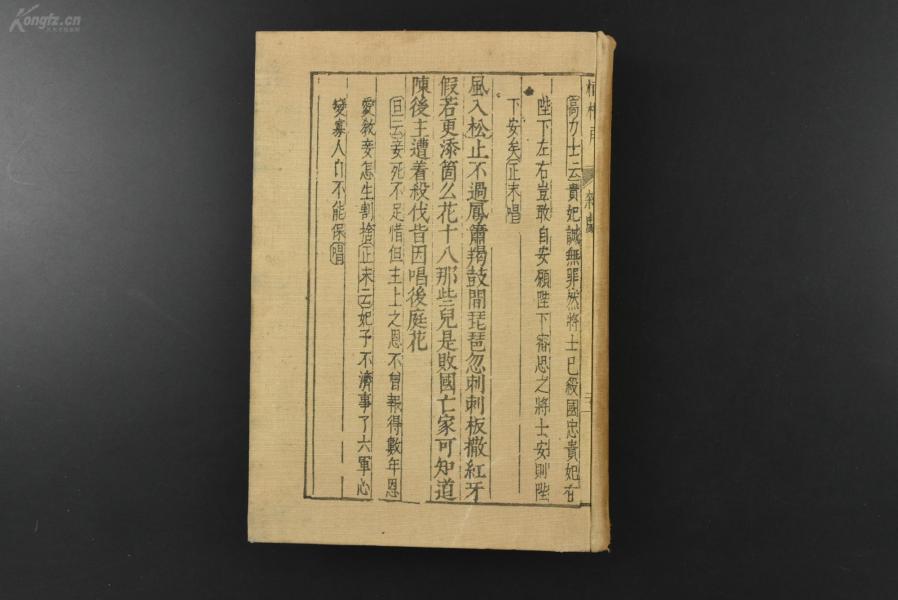 Kongfz.cn
梧桐雨
雜劇
高力士云貴妃誠無罪然將士已殺國忠貴妃在
陛下左右豈敢自安願陛下審思之將士安則陛
下安矣正末唱
風入松止不過鳳簫羯鼓間琵琶忽剌剌板撒紅牙
假若更添箇么花十八那些兒是敗國亡家可知道
陳後主遭着殺伐皆因唱後庭花
旦云妾死不足惜但主上之恩不曾報得數年恩
愛敎妾怎生割捨正末云妃子不濟事了六軍心
變寡人自不能保唱